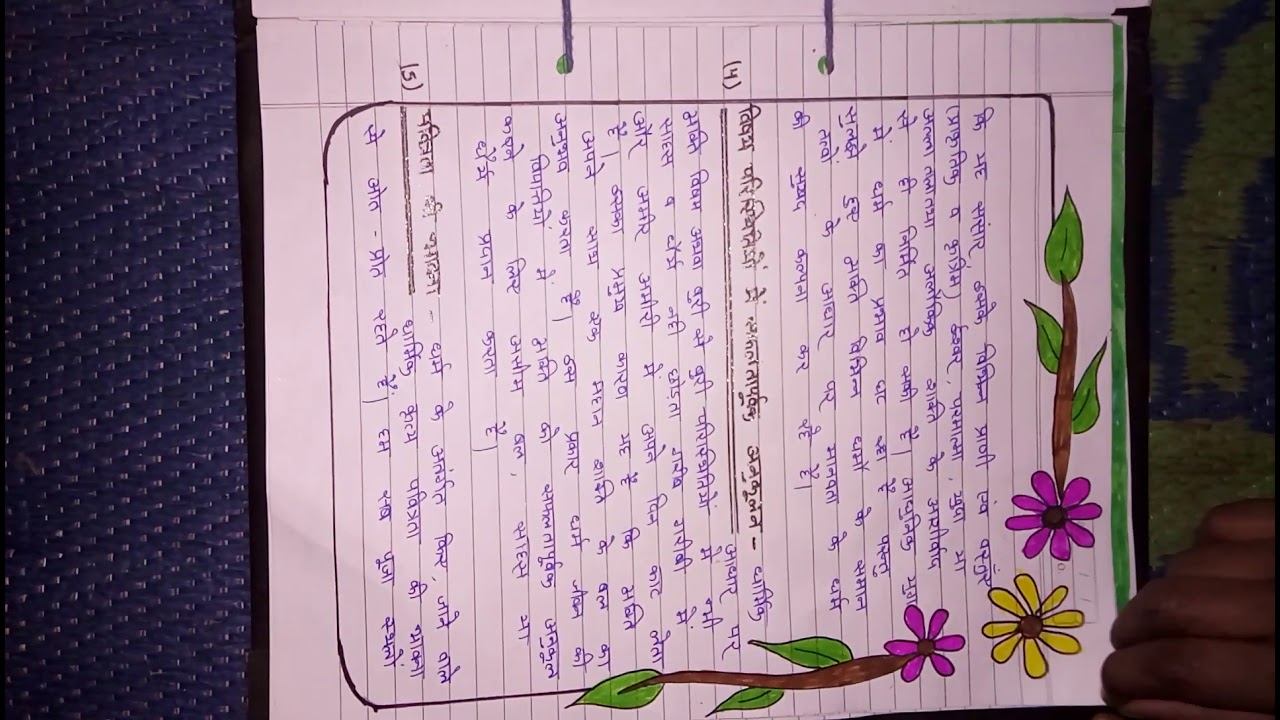 कि यह संसार इसके विभिन्न प्राणी एंव वस्तुएं
(प्राकृतिक व कृत्रिम) ईश्वर, परमात्मा, खुदा या
अल्ला ताला तथा अलौकिक शक्ति के आशीर्वाद
से ही निर्मित हो सकी है। आधुनिक युग
में धर्म का प्रभाव घट रहा है परन्तु
सुलझे हुए व्यक्ति विभिन्न धर्मों के समान
तत्वों के आधार पर मानवता के धर्म
की सुखद कल्पना कर रहे हैं।
(4) विषम परिस्थितियों में सफलतापूर्वक अनुकूलन - धार्मिक
आधार पर
व्यक्ति विषम अथवा बुरी से बुरी परिस्थितियों में भी
साहस व धैर्य नहीं छोड़ता गरीब गरीबी में
और अमीर अमीरी में अपने दिन काट लेता
है। इसका प्रमुख कारण यह है कि व्यक्ति
अपने साथ एक महान शक्ति के बल का
अनुभव करता है। इस प्रकार धर्म जीवन की
विपत्तियों में व्यक्ति को सफलतापूर्वक अनुकूलन
करने के लिए असीम बल, साहस या
धैर्य प्रदान करता है।
(5) पवित्रता की भावना - धर्म के अंतर्गत किए जाने वाले
धार्मिक कृत्य पवित्रता की भावना
से ओत - प्रोत रहते हैं। हम सब पूजा स्थलों